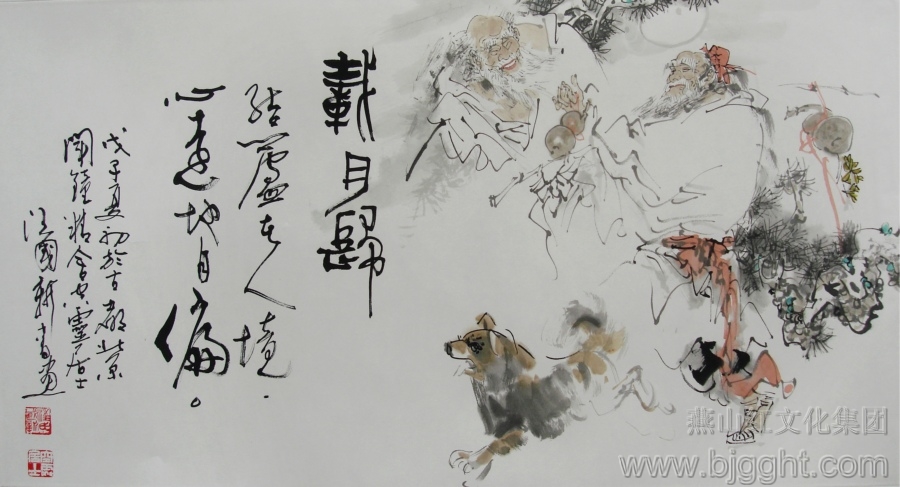 載月歸
結廬在人境
心遠地自偏。
戊子夏初於古都北京
聞鐘精舍靈居士
汪國新書畫
燕山红文化集团
www.bjgght.com